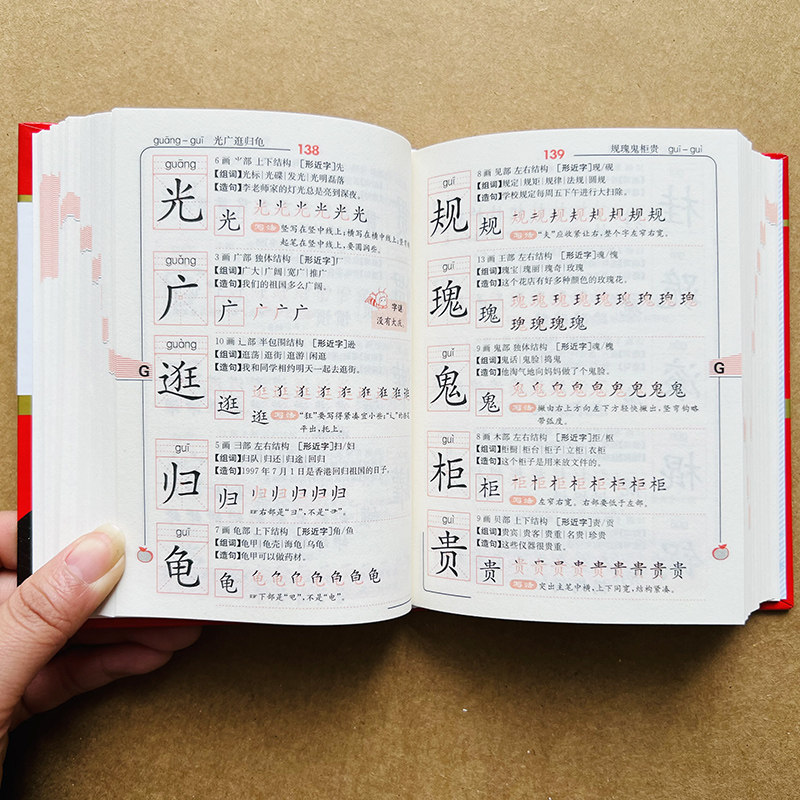 guāng–guī 光广逛归龟 138
guāng
光
6画 ⺌部 上下结构 [形近字]先
【组词】光标|光碟|发光|光明磊落
【造句】李老师家的灯光总是亮到深夜。
光 光光光光光光
写法 竖写在竖中线上;横写在横中线上;竖弯
起笔在竖中线上,要圆润些。
guǎng
广
3画 广部 独体结构 [形近字]厂
【组词】广大|广阔|宽广|推广
【造句】我们的祖国多么广阔。
广 广广广
字谜
没有大庆。
guàng
逛
10画 辶部 半包围结构 [形近字]逊
【组词】逛荡|逛街|逛游|闲逛
【造句】我和同学相约明天一起去逛街。
逛 逛逛逛逛逛逛逛逛逛
逛 写法 “狂”要写得紧凑宜小些;“辶”的
平出,托上。
G
guī
归
5画 彐部 左右结构 [形近字]扫/妇
【组词】归队|归还|归途|回归
【造句】1997年7月1日是香港回归祖国的日子。
归 归归归归归
右部是“彐”,不是“⺕”。
guī
龟
7画 龟部 上下结构 [形近字]角/鱼
【组词】龟甲|龟壳|海龟|乌龟
【造句】龟甲可以做药材。
龟 龟龟龟龟龟龟龟
下部是“电”,不是“电”。
139 规瑰鬼柜贵 guī–guì
guī
规
8画 见部 左右结构 [形近字]现/砚
【组词】规定|规矩|规律|法规|圆规
【造句】学校规定每周五下午进行大扫除。
规 规规规规规规规规
写法 “夫”应收紧让右,整个字左窄右宽。
guī
瑰
13画 王部 左右结构 [形近字]魂/愧
【组词】瑰宝|瑰丽|瑰奇|玫瑰
【造句】这个花店有好多种颜色的玫瑰花。
瑰 瑰瑰瑰瑰瑰瑰瑰瑰瑰
瑰瑰瑰瑰
guǐ
鬼
9画 鬼部 独体结构 [形近字]魂/槐
【组词】鬼话|鬼脸|捣鬼
【造句】他淘气地向妈妈做了个鬼脸。
鬼 鬼鬼鬼鬼鬼鬼鬼鬼鬼
写法 撇由右上方向左下方轻快撇出,竖弯钩略
带弧度。
G
guì
柜
8画 木部 左右结构 [形近字]拒/枢
【组词】柜橱|柜台|柜子|立柜|衣柜
【造句】这个柜子是用来放文件的。
柜 柜柜柜柜柜柜柜柜
写法 左窄右宽。右部要低于左部。
guì
贵
9画 贝部 上下结构 [形近字]责/贡
【组词】贵宾|贵客|贵重|名贵|珍贵
【造句】这些仪器很贵重。
贵 贵贵贵贵贵贵贵贵贵
写法 突出主笔中横,上下同宽,结构紧凑。